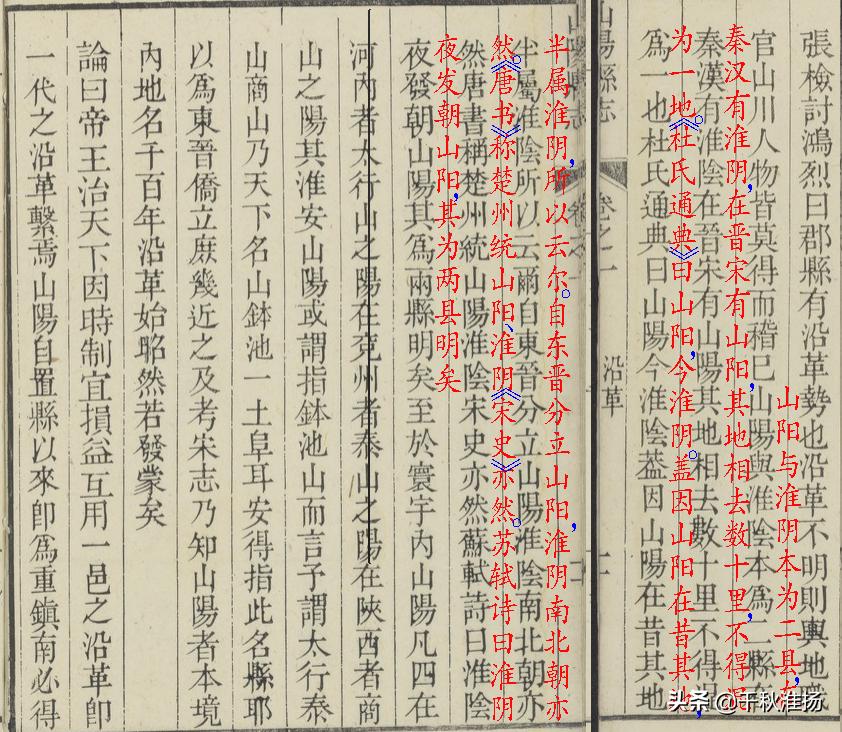 張檢討鴻烈曰郡縣有沿革勢也沿革不明則輿地
官山川人物皆莫得而稽巳山陽與淮陰本為二縣
山阳与淮阴本为二县,
秦漢有淮陰在晉宋有山陽其地相去數十里不得
秦汉有淮阴,在晋宋有山阳,其地相去数十里,不得
為一也杜氏通典曰山陽今淮陰葢因山陽在昔其地
为一地。《杜氏通典》曰山阳,今淮阴。盖因山阳在昔其
山陽縣志 卷之一 沿革
半屬淮陰所以云爾自東晉分立山陽淮陰南北朝亦
半属淮阴,所以云尔。自东晋分立山阳,淮阴南北朝亦
然唐書稱楚州統山陽淮陰宋史亦然蘇軾詩曰淮陰
然。《唐书》称楚州统山阳、淮阴《宋史》亦然。苏轼诗曰淮阴
夜發朝山陽其為兩縣明矣至於寰宇內山陽凡四在
夜发朝山阳,其为两县明矣
河內者太行山之陽在兗州者泰山之陽在陝西者商
山之陽其淮安山陽或謂指鉢池山而言予謂太行泰
山商山乃天下名山鉢池一土阜耳安得指此名縣耶
以為東晉僑立庶幾近之及考宋志乃知山陽者本境
內地名千百年沿革始昭然若發蒙矣
論曰帝王治天下因時制宜損益互用一邑之沿革卽
一代之沿革繫焉山陽自置縣以來卽為重鎮南必得
头条 @千秋淮扬